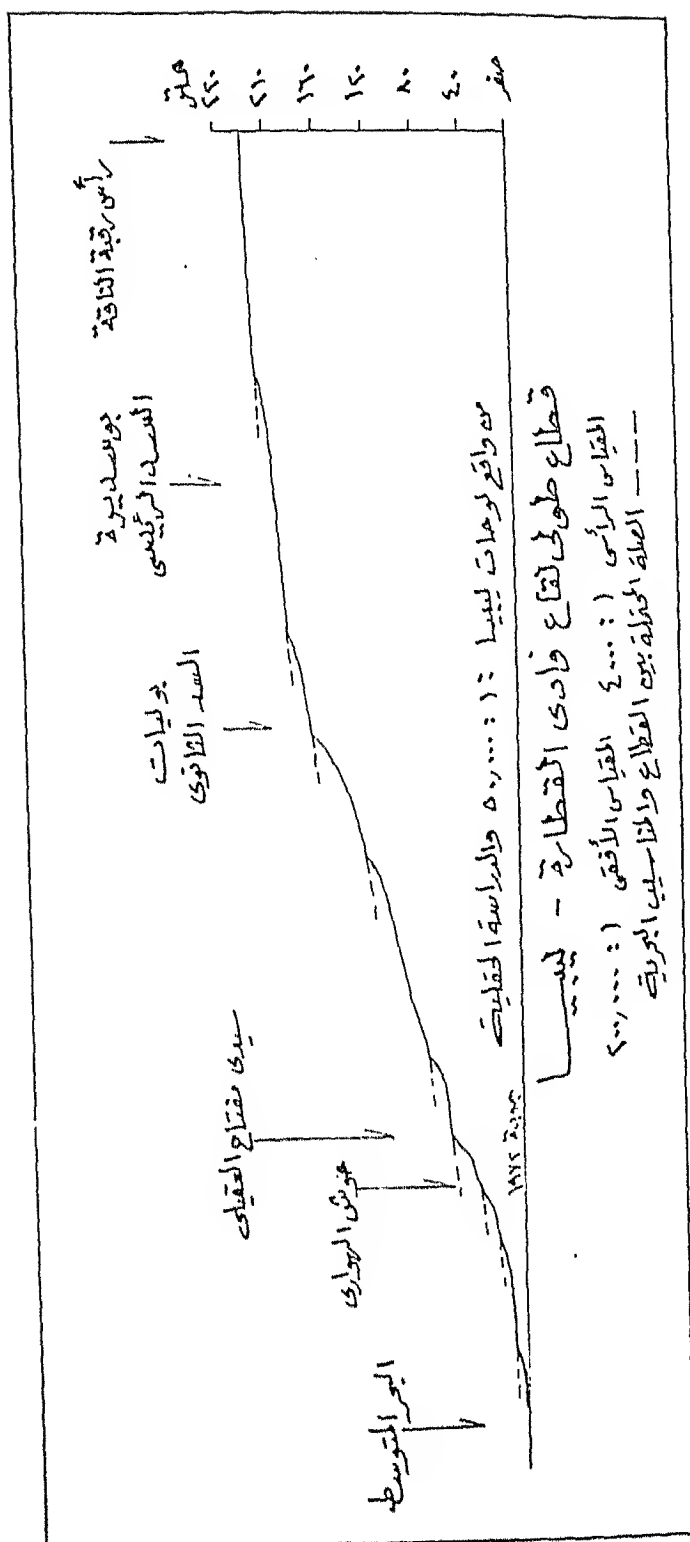 متر
٢٤٠
٢١٠
١٦٠
١٢٠
٨٠
٤٠
صفر
رأس رقبة الناقة
بوسديرة
السد الرئيسى
بوليات
السد الثانوى
سيدى مفتاح العقيلى
حوش الهوارى
البحر المتوسط
من واقع لوحات ليبيا ١ : ٥٠,٠٠٠ والدراسة الحقلية
١٩٧٢
قطاع طولى لقاع وادى القطارة - ليبيا
المقياس الرأسى ١ : ٤٠٠٠ المقياس الأفقى ١ : ٢٠٠,٠٠٠
---- الصلة المحتملة بين القطاع والمناسيب البحرية